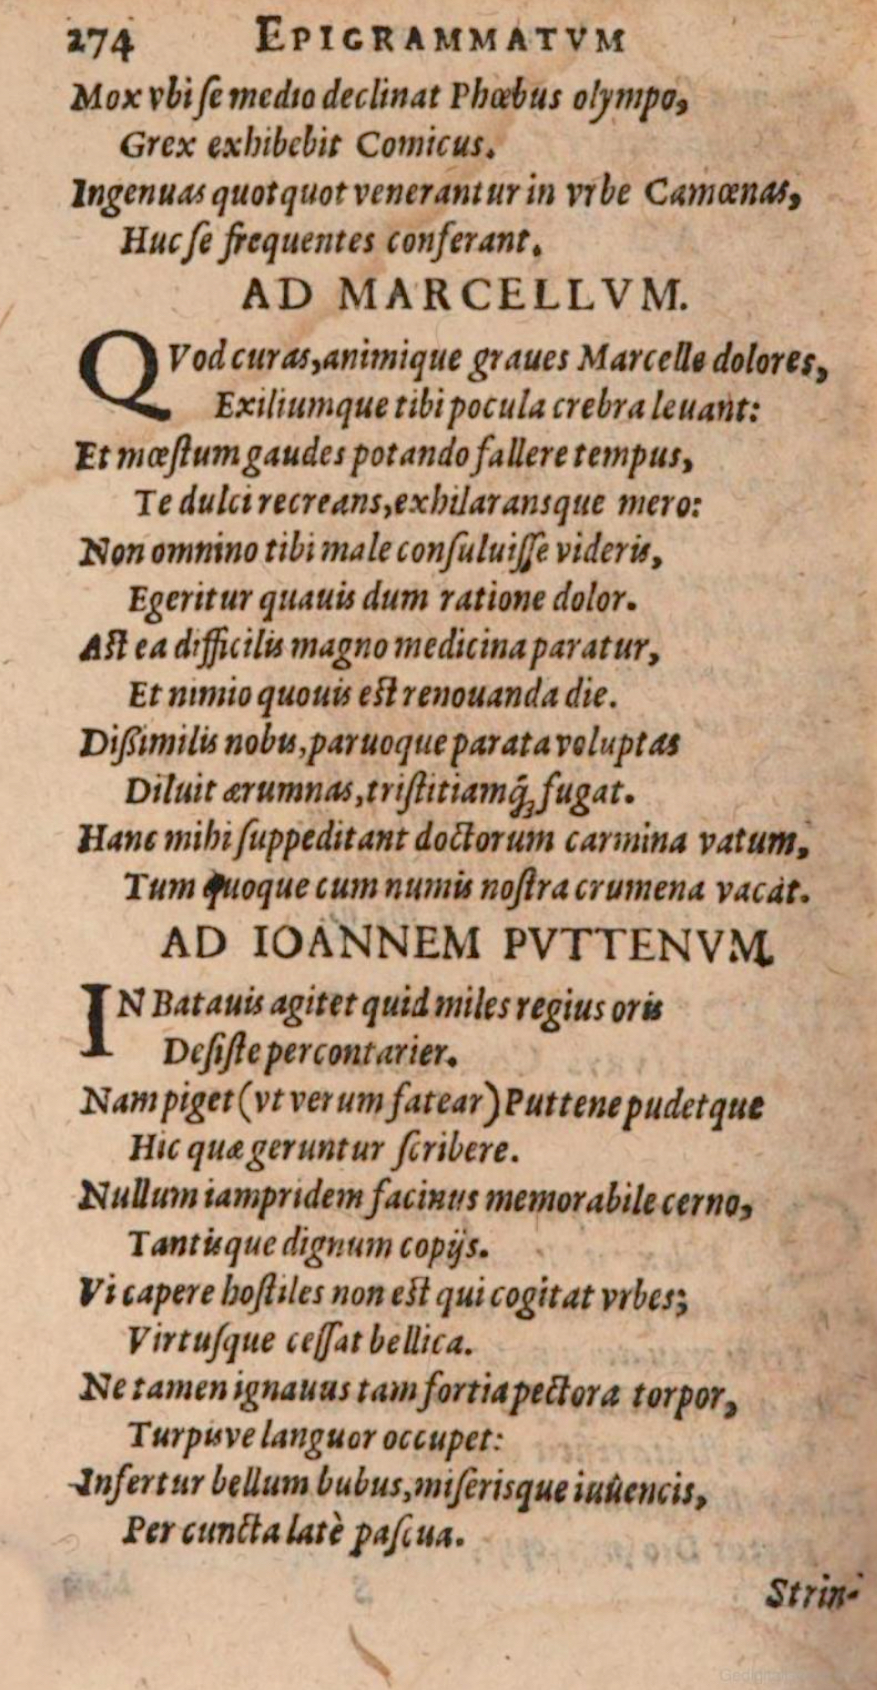 274 EPIGRAMMATVM
Mox vbi ſe medio declinat Phœbus olympo,
Grex exhibebit Comicus.
Ingenuas quotquot venerantur in vrbe Camœnas,
Huc ſe frequentes conferant.
AD MARCELLVM.
QVod curas, animique graues Marcelle dolores,
Exiliumque tibi pocula crebra leuant:
Et mœſtum gaudes potando fallere tempus,
Te dulci recreans, exhilaransque mero:
Non omnino tibi male conſuluiſſe videris,
Egeritur quauis dum ratione dolor.
Aſt ea difficilis magno medicina paratur,
Et nimio quouis eſt renouanda die.
Diſſimilis nobis, paruoque parata voluptas
Diluit ærumnas, triſtitiamq́ꝫ fugat.
Hanc mihi ſuppeditant doctorum carmina vatum,
Tum quoque cum numis noſtra crumena vacat.
AD IOANNEM PVTTENVM.
IN Batauis agitet quid miles regius oris
Deſiſte percontarier.
Nam piget (vt verum fatear) Puttene pudetque
Hic quæ geruntur ſcribere.
Nullum iampridem facinus memorabile cerno,
Tantisque dignum copijs.
Vi capere hoſtiles non eſt qui cogitat vrbes;
Virtuſque ceſſat bellica.
Ne tamen ignauus tam fortia pectora torpor,
Turpisve languor occupet:
Infertur bellum bubus, miſerisque iuuencis,
Per cuncta latè paſcua.
Strin-